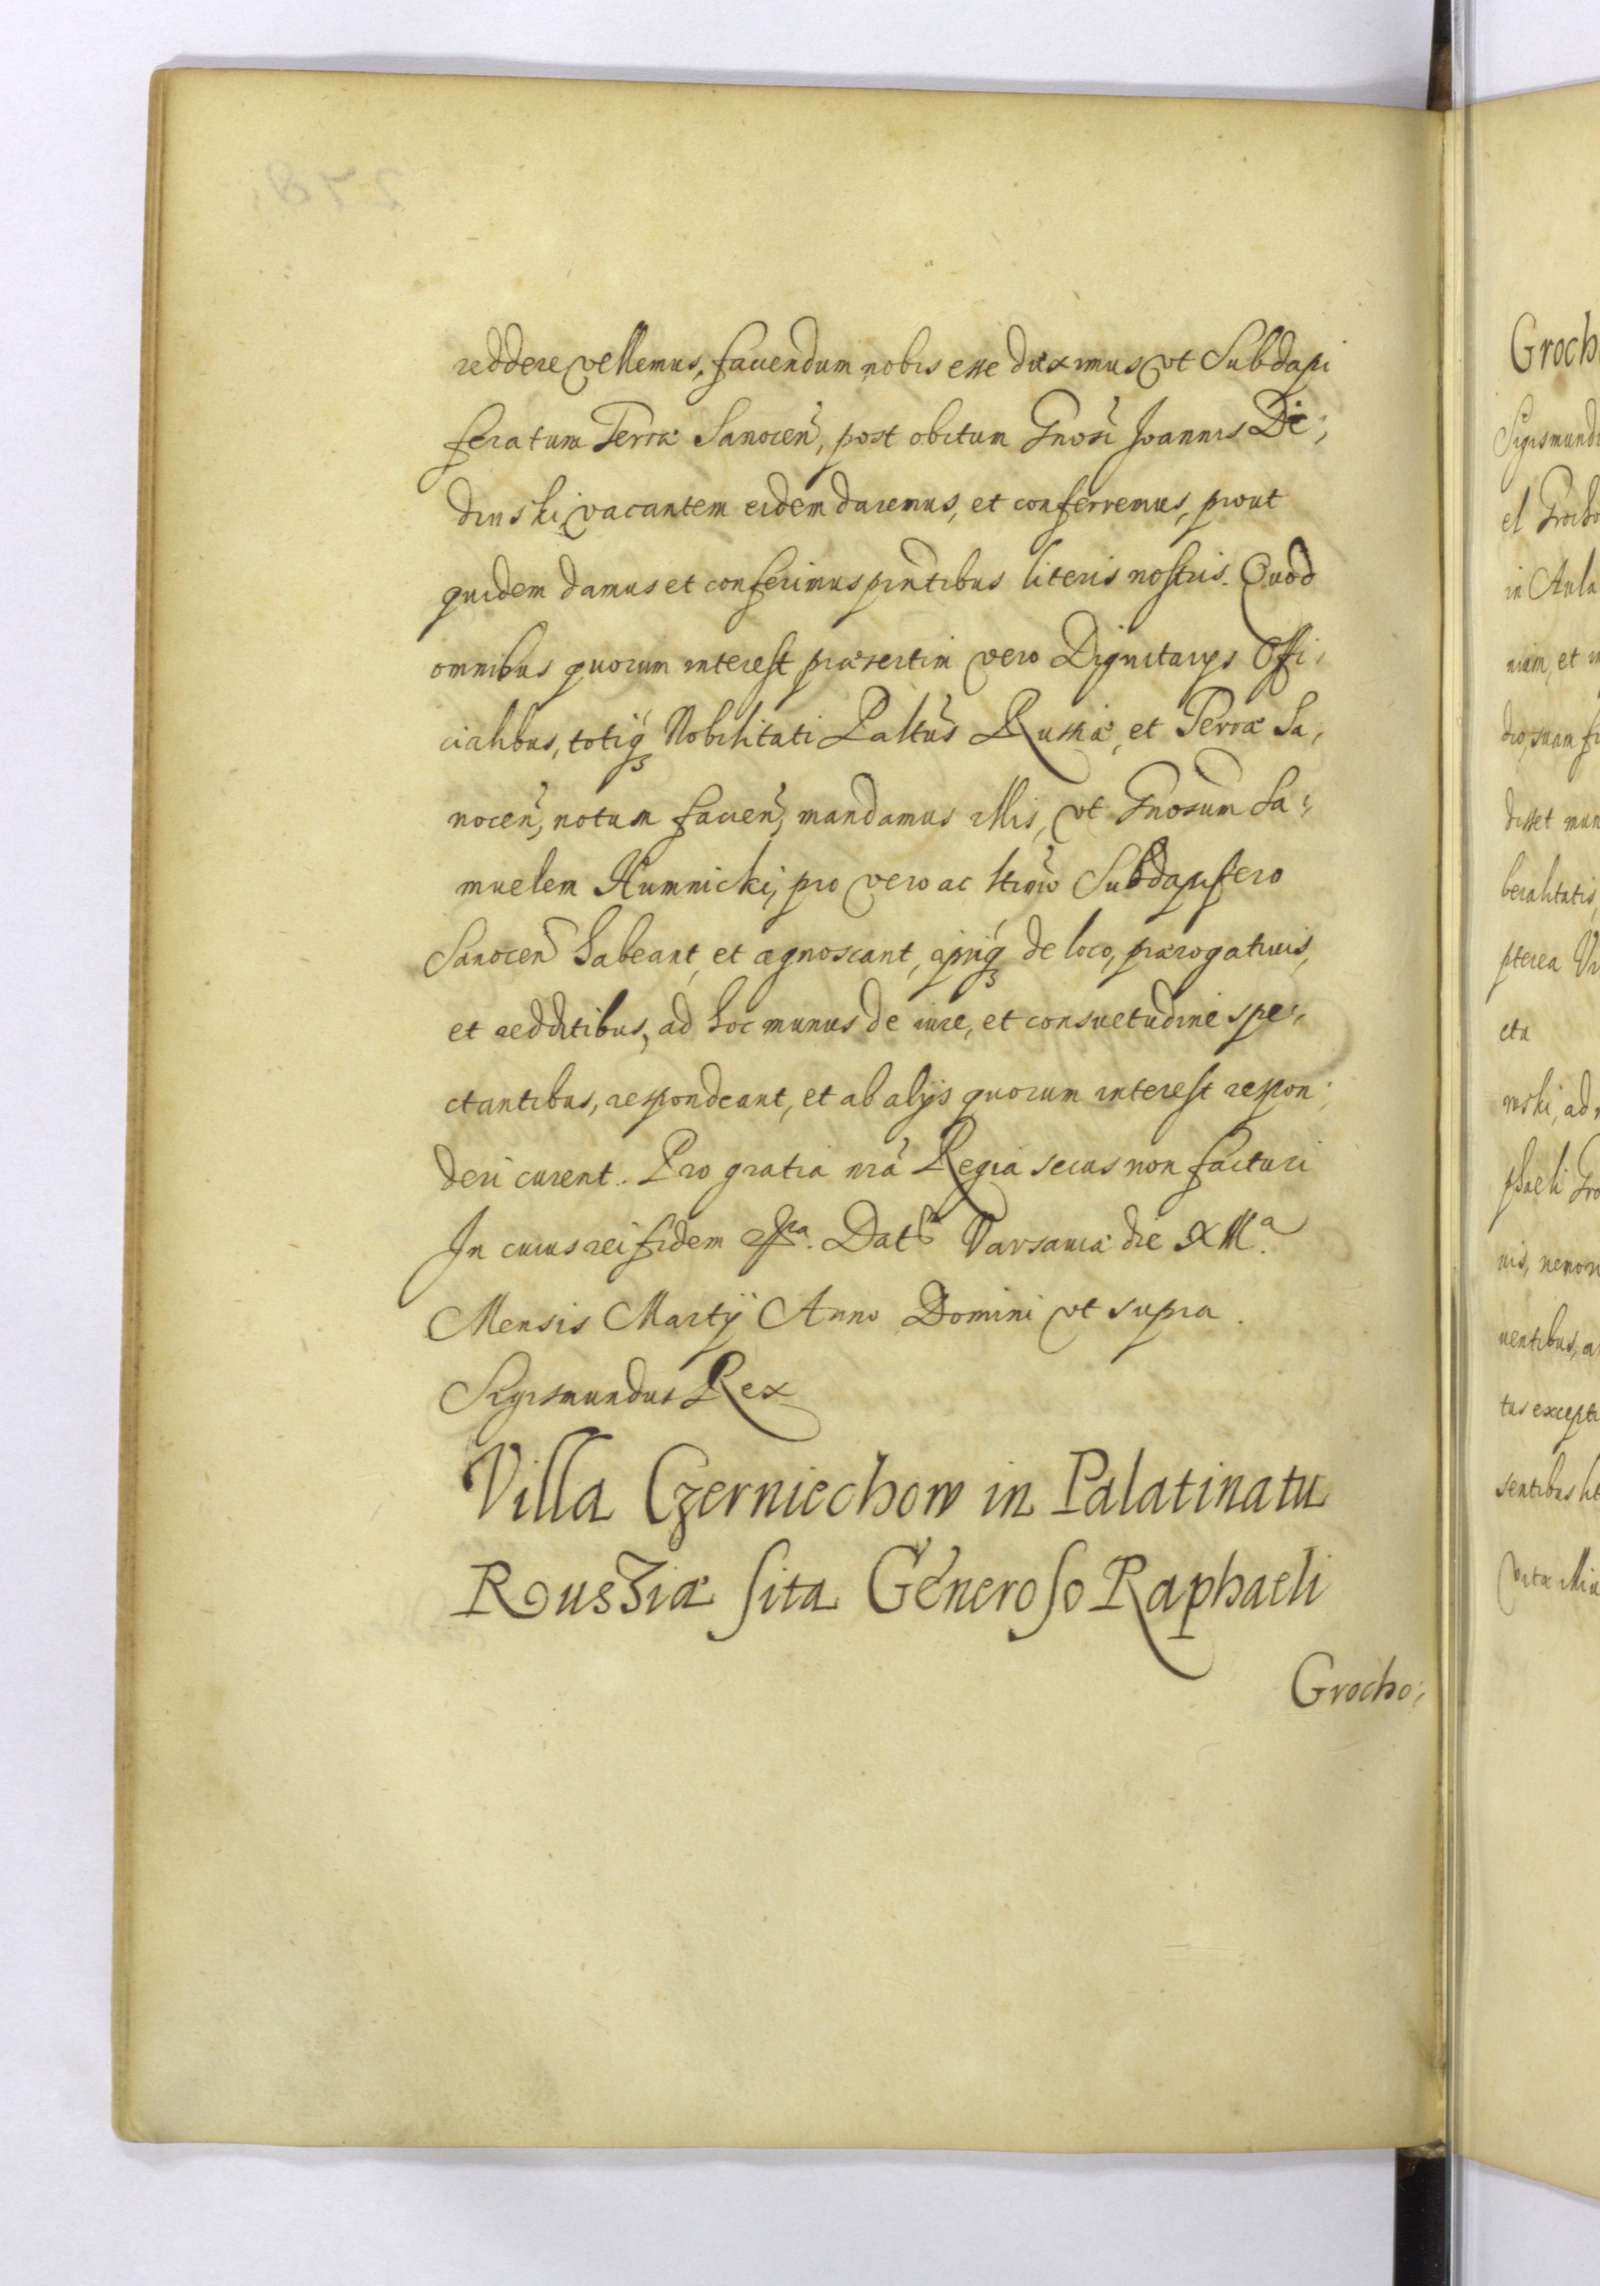 reddere vellemus, fauendum nobis esse duximus vt Subdapi
feratum Terræ Sanocen̄, post obitum Gnosi Joannis De;
dinski, vacantem eidem daremus, et conferremus, prout
quidem damus et conferimus pn̄tibus literis nostris. Quod
omnibus quorum interest præsertim vero Dignitarys Offi,
cialibus, totiq; Nobilitati Paltūs Russiæ, et Terræ Sa,
nocen̄, notum facien̄, mandamus illis, vt Gnosum Sa;
muelem Humnicki, pro vero ac ltimo Subdapifero
Sanocen̄ habeant, et agnoscant, eiq; de loco, prærogatiuis,
et redditibus, ad hoc munus de iure, et consuetudine spe,
ctantibus, respondeant, et ab alijs quorum interest respon;
deri curent. Pro gratia nrā Regia secus non facturi
In cuius rei fidem Dat Varsauiæ die
Mensis Martij Anno Domini vt supra.
Sigismundus Rex
Villa Czerniechow in Palatinatu
Russiæ sita Generoso Raphaeli
Grocho;
Groch
Sigismund
el Grocho
in Aula
niam, et
dio, suam
disset mun
beralitatis,
pterea
cta
wski, ad
phaeli Gro
nis, necnon
uentibus, a
tus excepti
sentibus lit
vita